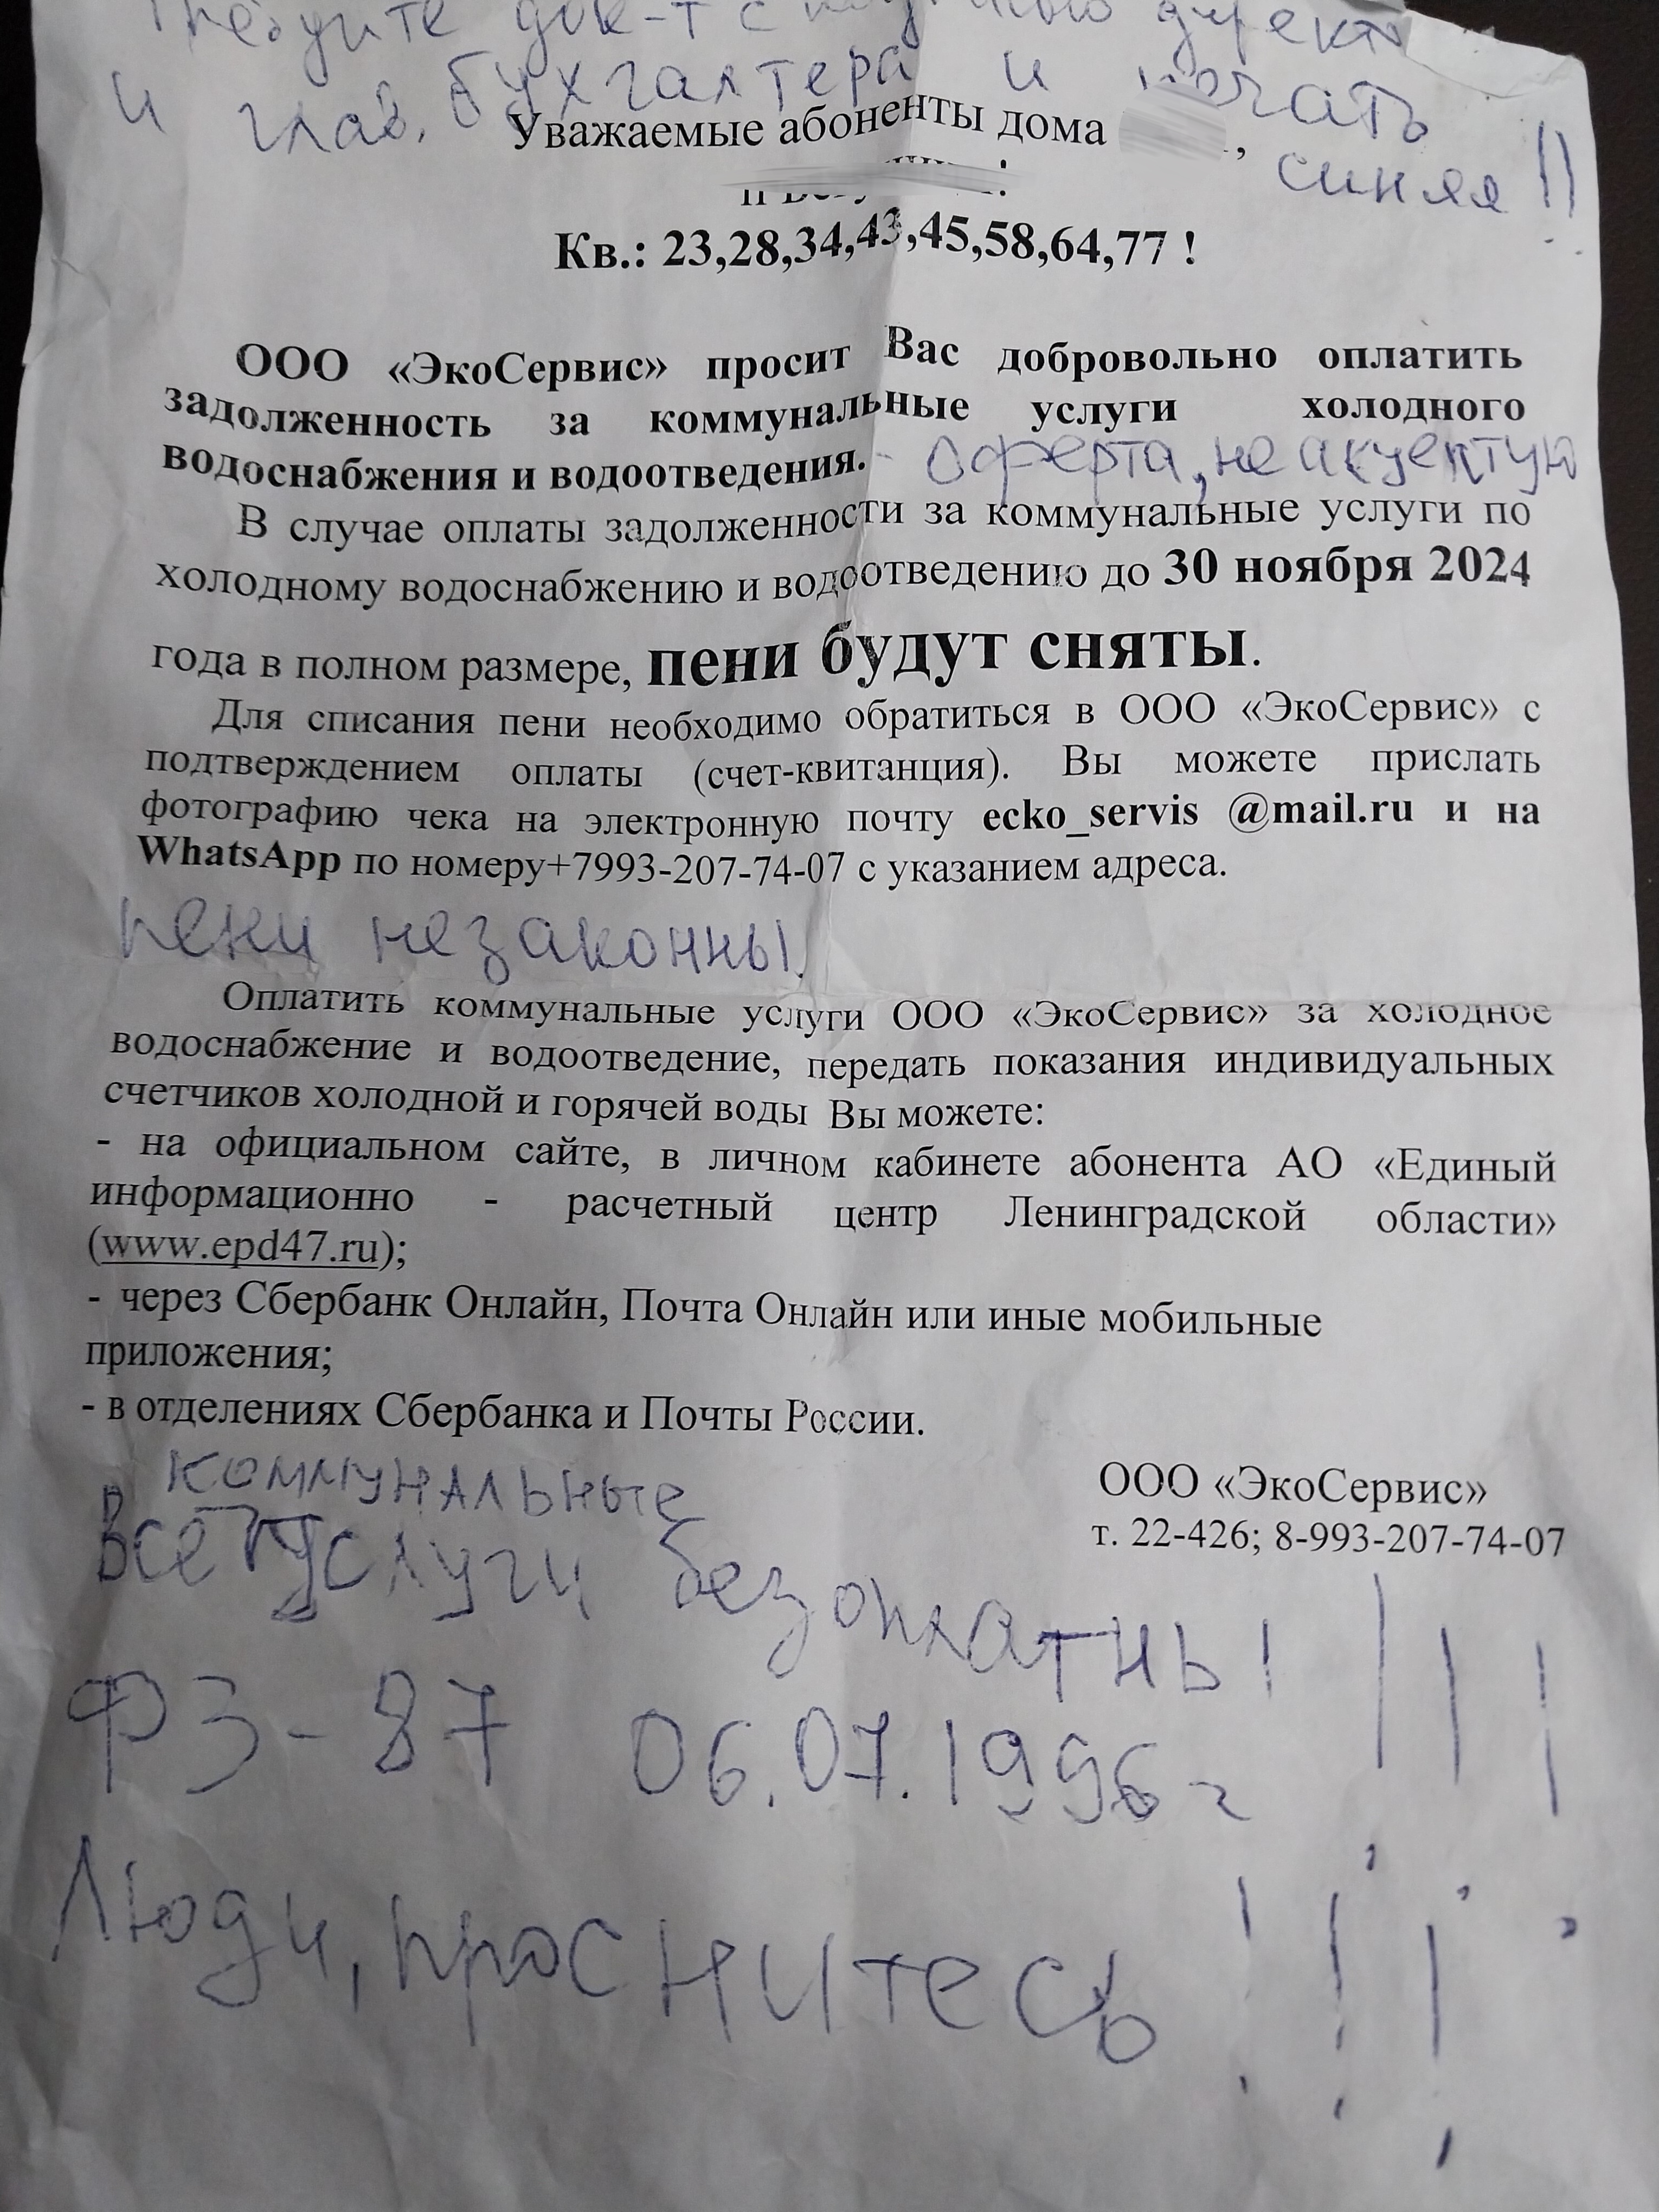 Требуите док-т с
и глав. бухгалтера и печать
синяя !!
Уважаемые абоненты дома ,
Кв.: 23,28,34,43,45,58,64,77 !
ООО «ЭкоСервис» просит Вас добровольно оплатить
задолженность за коммунальные услуги холодного
водоснабжения и водоотведения. - оферта, не акцептую
В случае оплаты задолженности за коммунальные услуги по
холодному водоснабжению и водоотведению до 30 ноября 2024
года в полном размере, пени будут сняты.
Для списания пени необходимо обратиться в ООО «ЭкоСервис» с
подтверждением оплаты (счет-квитанция). Вы можете прислать
фотографию чека на электронную почту ecko_servis @mail.ru и на
WhatsApp по номеру+7993-207-74-07 с указанием адреса.
пени незаконны.
Оплатить коммунальные услуги ООО «ЭкоСервис» за холодное
водоснабжение и водоотведение, передать показания индивидуальных
счетчиков холодной и горячей воды Вы можете:
- на официальном сайте, в личном кабинете абонента АО «Единый
информационно - расчетный центр Ленинградской области»
(www.epd47.ru);
- через Сбербанк Онлайн, Почта Онлайн или иные мобильные
приложения;
- в отделениях Сбербанка и Почты России.
ООО «ЭкоСервис»
т. 22-426; 8-993-207-74-07
коммунальные
Все услуги безоплатны! !!!
ФЗ-87 06.07.1996г
Люди, проснитесь !!!